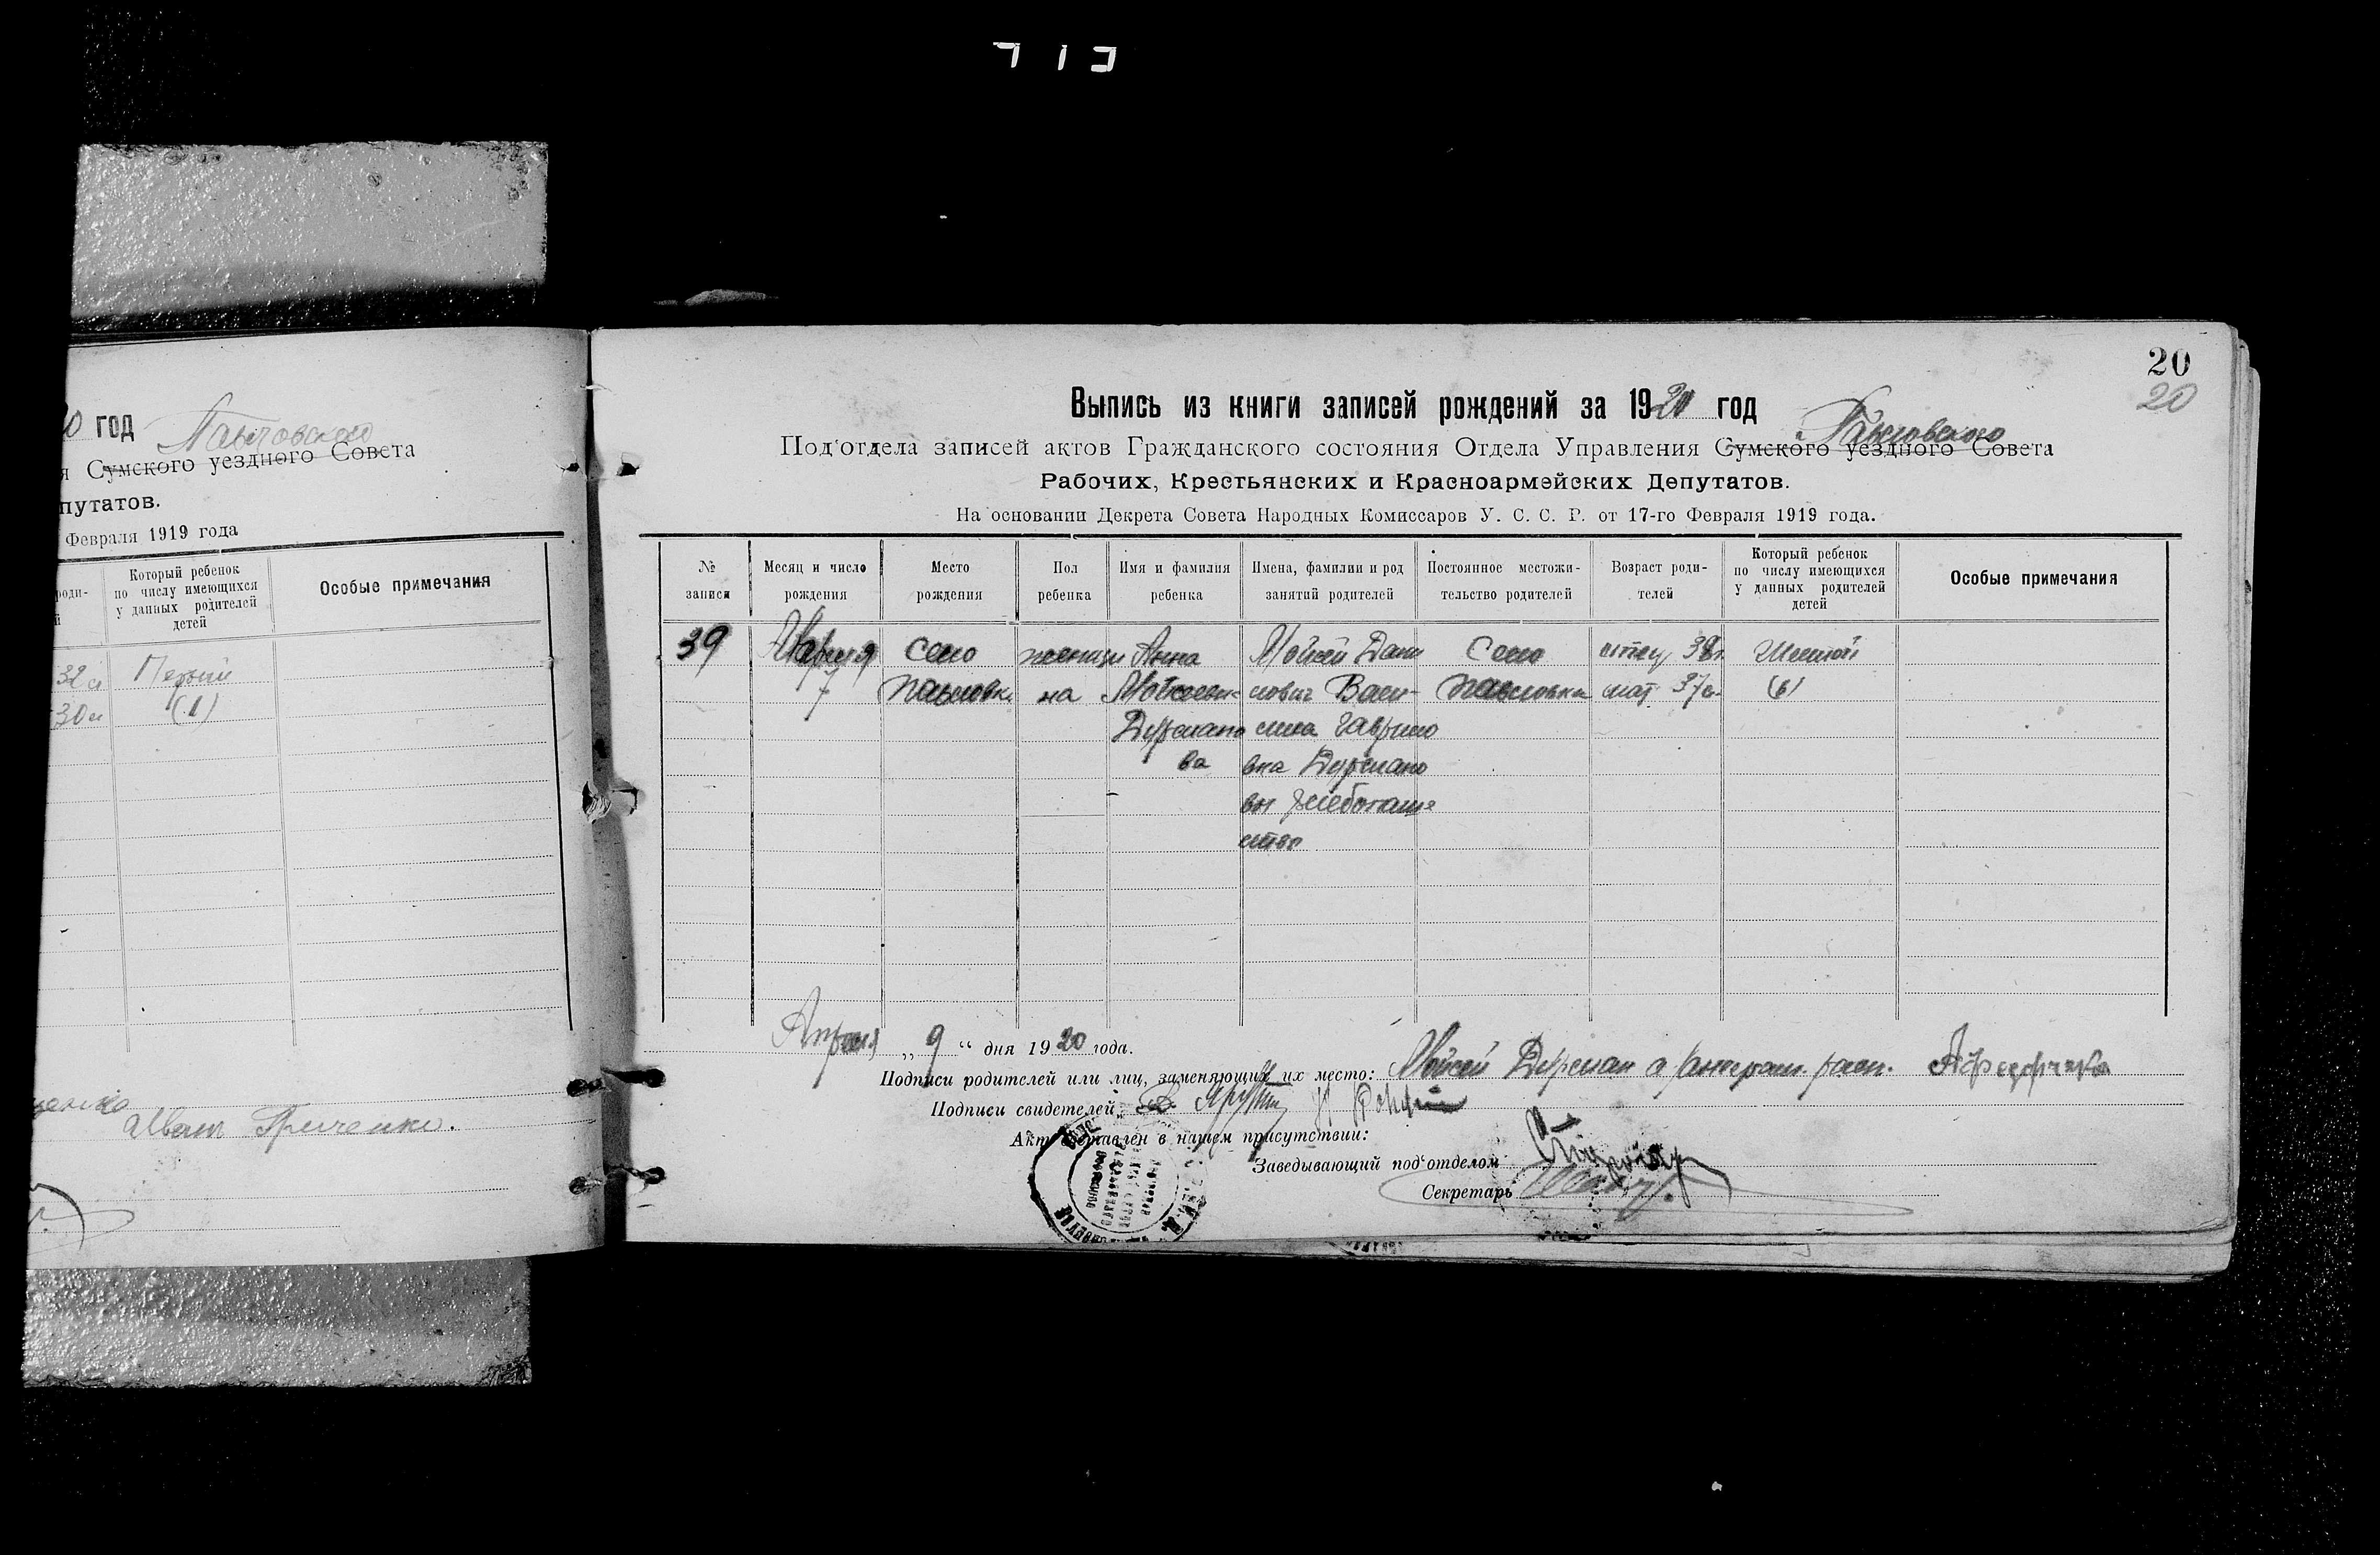 20 год Павловского
я Сумского уездного Совета
путатов.
Февраля 1919 года
роди-
й
Который ребенок
по числу имеющихся
у данных родителей
детей
Особые примечания
32 л Первый
30 л (1)
Иван Гриченко.
20
20
Выпись из книги записей рождений за 1920 год
Павловского
Под'отдела записей актов Гражданского состояния Отдела Управления Сумского уездного Совета
Рабочих, Крестьянских и Красноармейских Депутатов.
На основании Декрета Совета Народных Комиссаров У. С. С. Р. от 17-го Февраля 1919 года.
№
записи
Месяц и число
рождения
Место
рождения
Пол
ребенка
Имя и фамилия
ребенка
Имена, фамилии и род
занятий родителей
Постоянное местожи-
тельство родителей
Возраст роди-
телей
Который ребенок
по числу имеющихся
у данных родителей
детей
Особые примечания
39
7
Село
Павловка
женщи
на
Анна
Мойсеевн
Дурманo
ва
Мойсей Дани
лович Васи-
лиса Гаврило
вна Дурмано
вы хлебопаше
ство
Село
Павловка
отец 38 л.
мат 37 л.
Шестой
(6)
Апреля „9“ дня 1920 года.
Подписи родителей или лиц, заменяющих их место: Мойсей Дурман
Подписи свидетелей
Акт составлен в нашем присутствии:
Заведывающий под'отделом
Секретарь